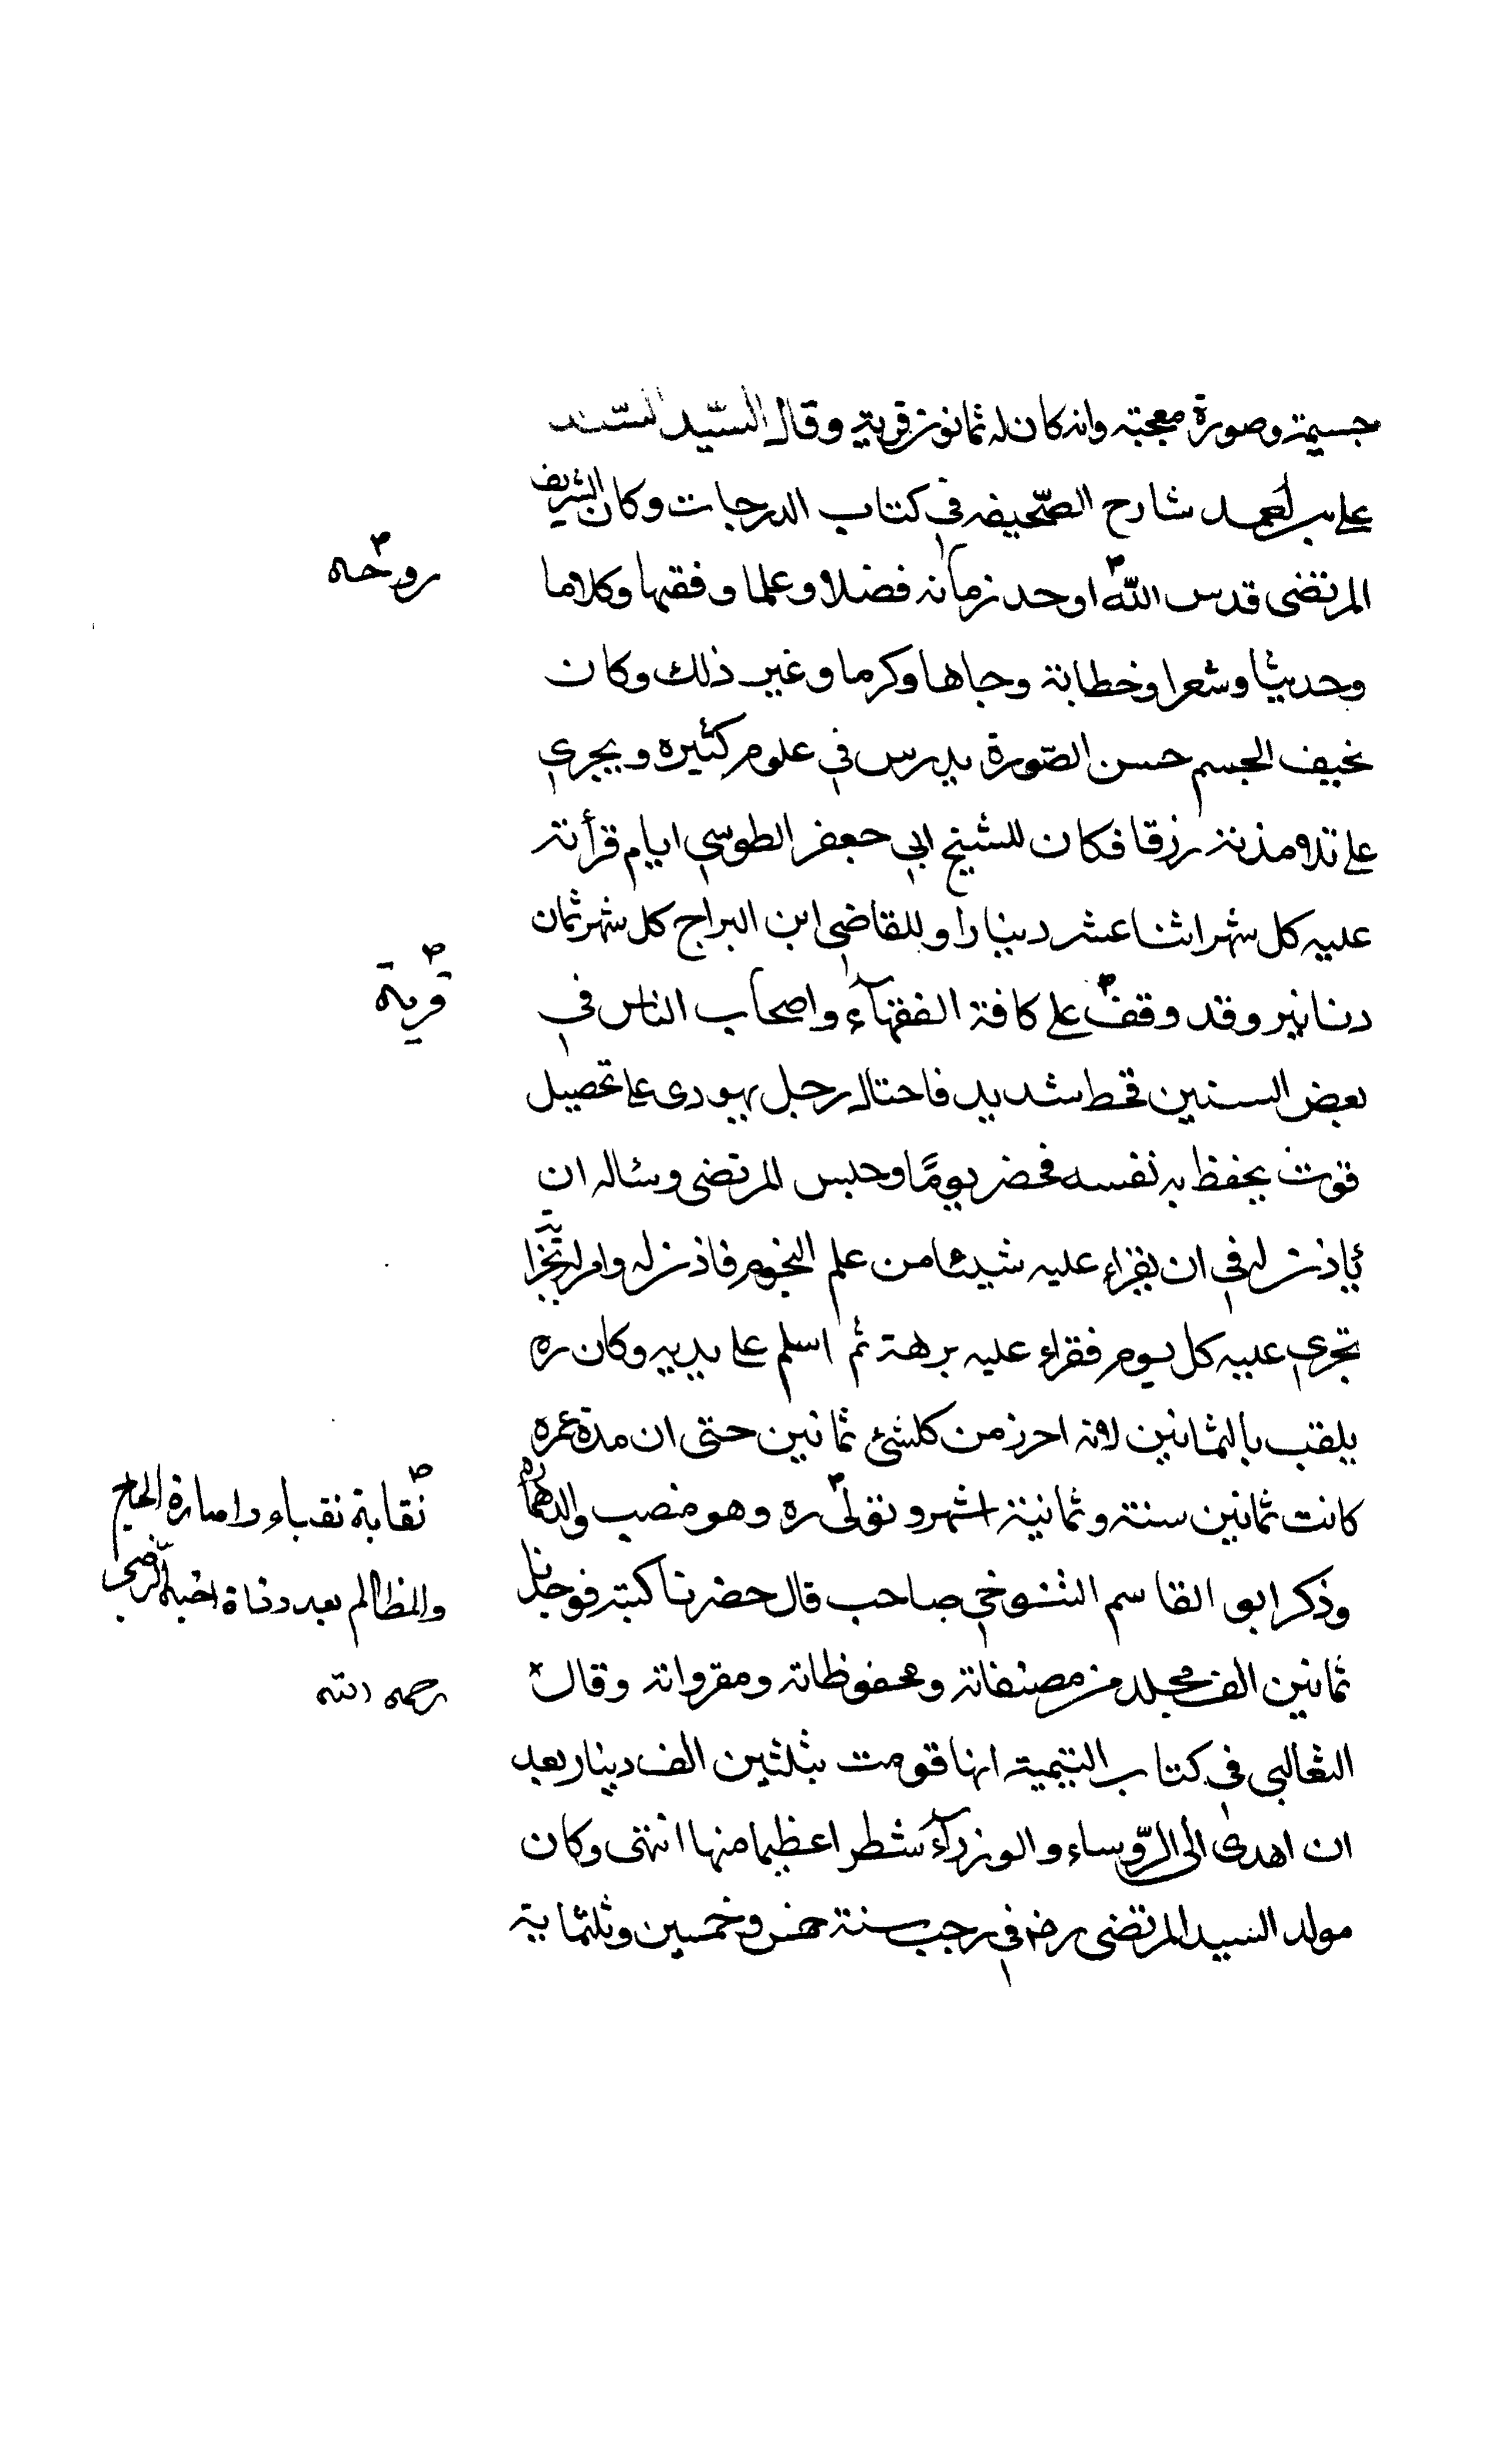 جسيمة وصورة معجبته وانه كان له ثمانون قرية وقال السيد السند
على بن احمد شارح الصحيفه فى كتاب الدرجات وكان الشريف
المرتضى قدس الله اوحد زمانه فضلا وعلما وفقها وكلاما
روحه
وحديثا وشعرا وخطابة وجاها وكرما وغير ذلك وكان
نحيف الجسم حسن الصّورة يدرس فى علوم كثيره ويجرى
على تلامذته رزقا فكان للشيخ ابى جعفر الطوسى ايام قرأته
عليه كل شهر اثنا عشر دينارا وللقاضى ابن البراج كل شهر ثمان
دنانير وقد وقف على كافة الفقهآء واصحاب الناس فى
قرية
بعض السنين قحط شديد فاحتال رجل يهودى على تحصيل
قوت يحفظ به نفسه فحضر يومًا وجلس المرتضى وسئاله ان
ياذن له فى ان يقراء عليه شيئا من علم النجوم فاذن له وامر له بجراية
تجرى عليه كل يوم فقراء عليه برهة ثم اسلم على يديه وكان ره
يلقب بالثمانين لانه احرز من كلشئ ثمانين حتى ان مدة عمره
كانت ثمانين سنة وثمانية اشهر وتولى ره وهو منصب والدهما ره
نقابة نقباء وامارة الحاج
والمظالم بعد وفاة اخيه الرضى
رحمه الله
وذكر ابو القاسم التنوخى صاحب قال حضرنا كتبه فوجدنا
ثمانين الف مجلد من مصنفاته ومحفوظاته ومقرواته وقال
الثعالبى فى كتاب اليتيمة انها قومت بثلثين الف دينار بعد
ان اهدى الى الرّوساء والوزرآء شطرا عظيما منها انتهى وكان
مولد السيد المرتضى رضه فى رجب سنة خمس وخمسين وثلثماية